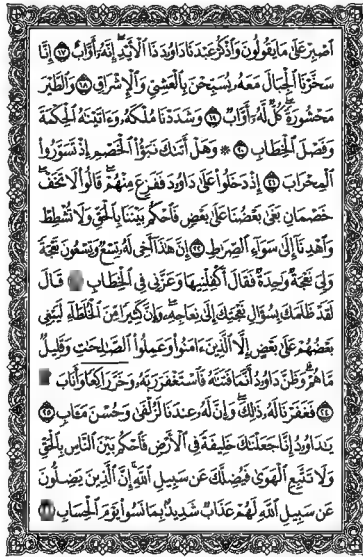 ٱصۡبِرۡ عَلَىٰ مَا يَقُولُونَ وَٱذۡكُرۡ عَبۡدَنَا دَاوُۥدَ ذَا ٱلۡأَيۡدِۖ إِنَّهُۥٓ أَوَّابٌ ١٧ إِنَّا
سَخَّرۡنَا ٱلۡجِبَالَ مَعَهُۥ يُسَبِّحۡنَ بِٱلۡعَشِيِّ وَٱلۡإِشۡرَاقِ ١٨ وَٱلطَّيۡرَ
مَحۡشُورَةٗۖ كُلّٞ لَّهُۥٓ أَوَّابٞ ١٩ وَشَدَدۡنَا مُلۡكَهُۥ وَءَاتَيۡنَٰهُ ٱلۡحِكۡمَةَ
وَفَصۡلَ ٱلۡخِطَابِ ٢٠ ۞ وَهَلۡ أَتَىٰكَ نَبَؤُاْ ٱلۡخَصۡمِ إِذۡ تَسَوَّرُواْ
ٱلۡمِحۡرَابَ ٢١ إِذۡ دَخَلُواْ عَلَىٰ دَاوُۥدَ فَفَزِعَ مِنۡهُمۡۖ قَالُواْ لَا تَخَفۡۖ
خَصۡمَانِ بَغَىٰ بَعۡضُنَا عَلَىٰ بَعۡضٖ فَٱحۡكُم بَيۡنَنَا بِٱلۡحَقِّ وَلَا تُشۡطِطۡ
وَٱهۡدِنَآ إِلَىٰ سَوَآءِ ٱلصِّرَٰطِ ٢٢ إِنَّ هَٰذَآ أَخِي لَهُۥ تِسۡعٞ وَتِسۡعُونَ نَعۡجَةٗ
وَلِيَ نَعۡجَةٞ وَٰحِدَةٞ فَقَالَ أَكۡفِلۡنِيهَا وَعَزَّنِي فِي ٱلۡخِطَابِ قَالَ
لَقَدۡ ظَلَمَكَ بِسُؤَالِ نَعۡجَتِكَ إِلَىٰ نِعَاجِهِۦۖ وَإِنَّ كَثِيرٗا مِّنَ ٱلۡخُلَطَآءِ لَيَبۡغِي
بَعۡضُهُمۡ عَلَىٰ بَعۡضٍ إِلَّا ٱلَّذِينَ ءَامَنُواْ وَعَمِلُواْ ٱلصَّٰلِحَٰتِ وَقَلِيلٞ
مَّا هُمۡۗ وَظَنَّ دَاوُۥدُ أَنَّمَا فَتَنَّٰهُ فَٱسۡتَغۡفَرَ رَبَّهُۥ وَخَرَّۤ رَاكِعٗاۤ وَأَنَابَ
٢٤ فَغَفَرۡنَا لَهُۥ ذَٰلِكَۖ وَإِنَّ لَهُۥ عِندَنَا لَزُلۡفَىٰ وَحُسۡنَ مَـَٔابٖ ٢٥
يَٰدَاوُۥدُ إِنَّا جَعَلۡنَٰكَ خَلِيفَةٗ فِي ٱلۡأَرۡضِ فَٱحۡكُم بَيۡنَ ٱلنَّاسِ بِٱلۡحَقِّ
وَلَا تَتَّبِعِ ٱلۡهَوَىٰ فَيُضِلَّكَ عَن سَبِيلِ ٱللَّهِۚ إِنَّ ٱلَّذِينَ يَضِلُّونَ
عَن سَبِيلِ ٱللَّهِ لَهُمۡ عَذَابٞ شَدِيدُۢ بِمَا نَسُواْ يَوۡمَ ٱلۡحِسَابِ